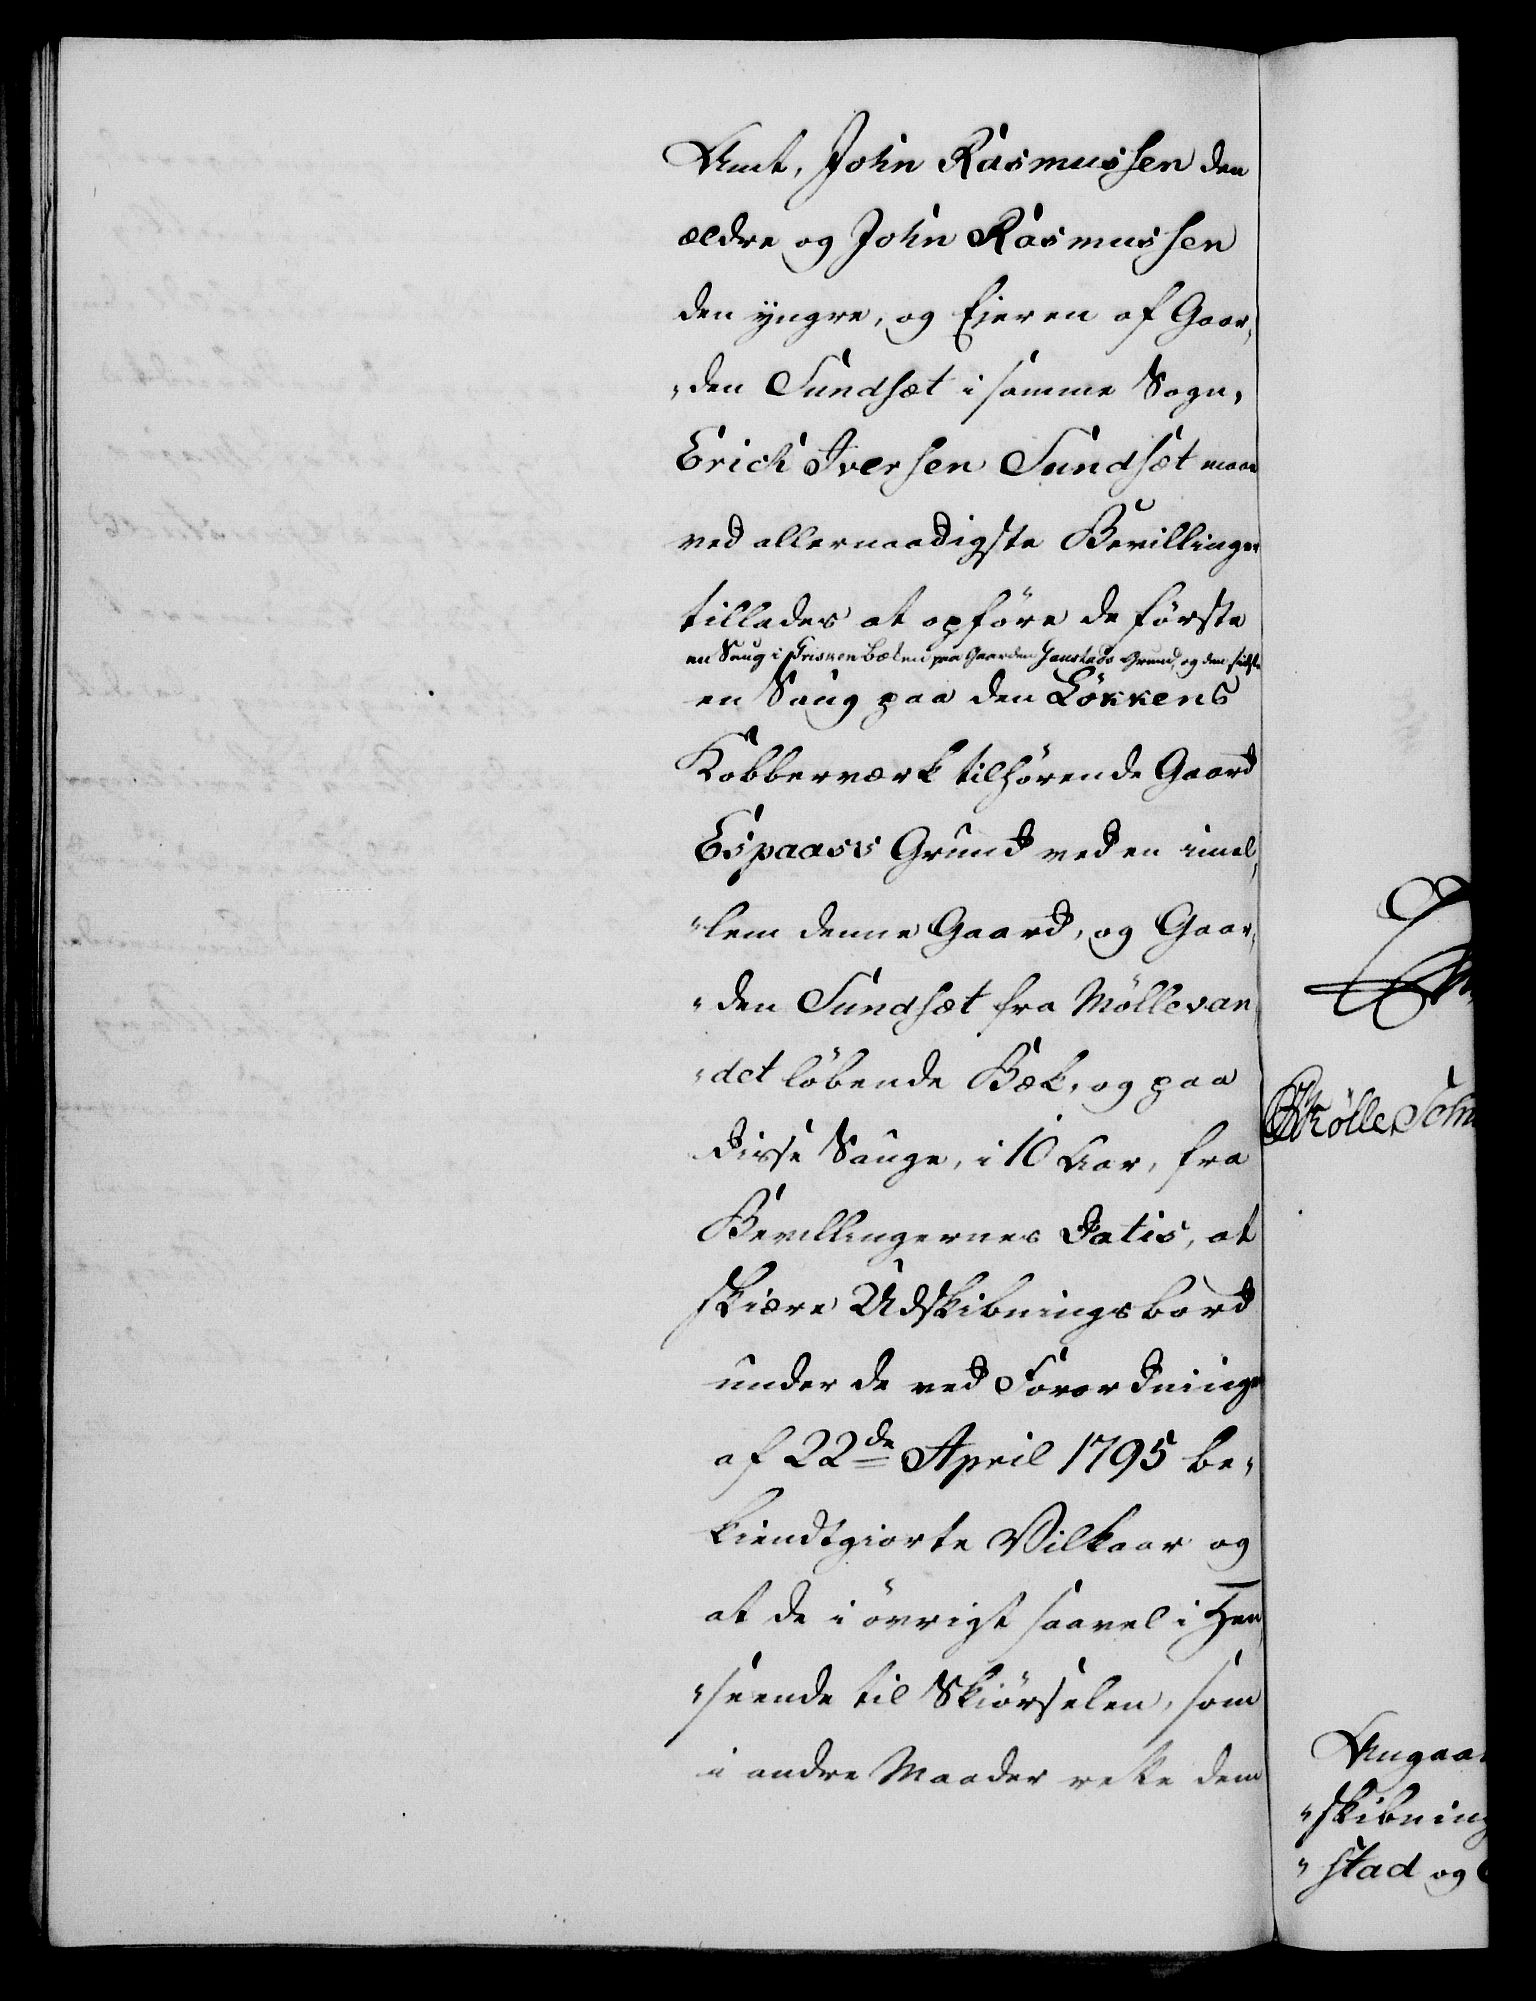 Amt, John Rasmussen den
ældre og John Rasmussen
den yngre, og Eieren af Gaar-
"den Sundsæt i samme Sogn,
Erich Iversen Sundsæt maae
ved allernaadigste Bevillinger
tillades at opföre de förste
en Saug i Griskenbæken paa Gaarden Haustads Grund, og den sidste
en Saug paa den Lökkens
Kobberværk tilhörende Gaard
Espaass Grund ved en imel-
"lem denne Gaard, og Gaar-
"den Sundsæt fra Möllevan
"det löbende Bæk, og paa
disse Sauge, i 10 Aar, fra
Bevillingernes Datis, at
skiære Udskibningsbord
under de ved Forordning
af 22de April 1795 be-
kiendtgiorte Vilkaar og
at de i övrigt saavel i Hen
"seende til Skiörselen, som
i andre Maader rette dem
Mölle Schu
Angaa
"skibning
"stad og